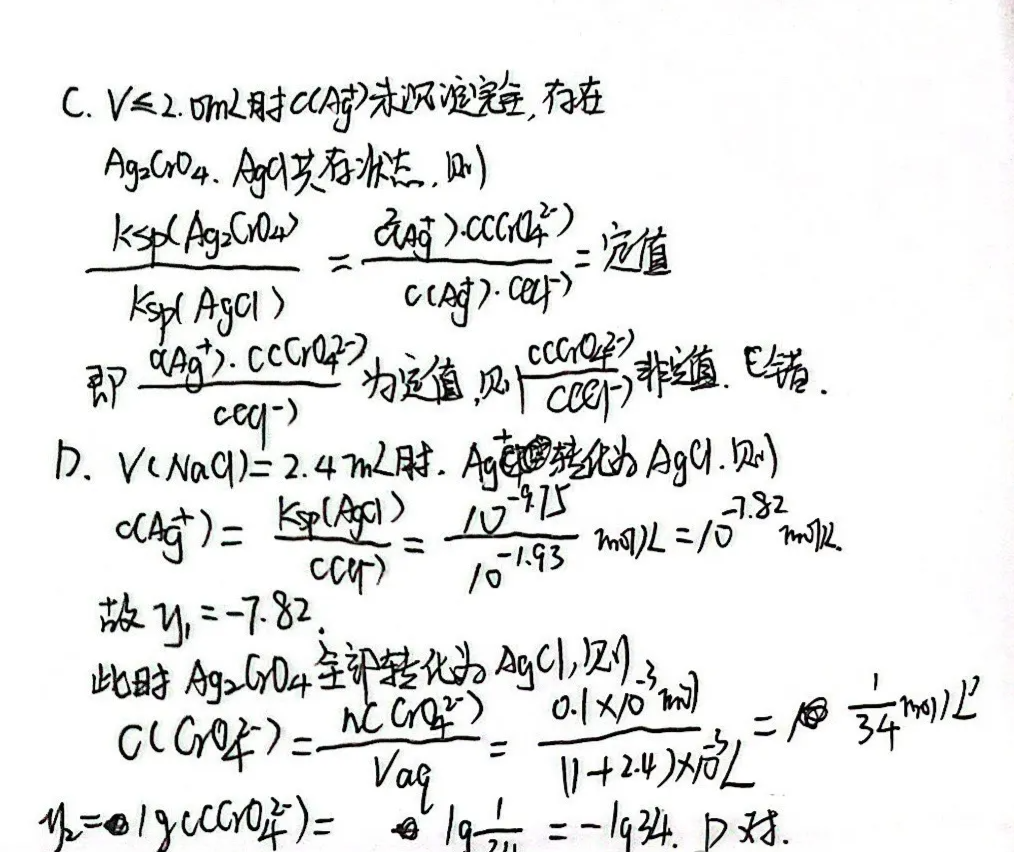 C. V≤2.0mL时c(Ag⁺)未沉淀完全,存在
Ag₂CrO₄、AgCl共存状态,则
Ksp(Ag₂CrO₄)/Ksp(AgCl) = c²(Ag⁺)·c(CrO₄²⁻)/c(Ag⁺)·c(Cl⁻) = 定值
即 c(Ag⁺)·c(CrO₄²⁻)/c(Cl⁻) 为定值,则 c(CrO₄²⁻)/c(Cl⁻) 非定值. C错.
D. V(NaCl)=2.4mL时. Ag⁺转化为AgCl.则
c(Ag⁺)= Ksp(AgCl)/c(Cl⁻) = 10^-9.75/10^-1.93 mol/L = 10^-7.82 mol/L.
故 y₁=-7.82.
此时 Ag₂CrO₄全部转化为AgCl,则
C(CrO₄²⁻) = n(CrO₄²⁻)/Vaq = 0.1×10⁻³mol/(1+2.4)×10⁻³L = 1/34 mol/L
y₂= lgc(CrO₄²⁻)= lg 1/34 = -lg34. D对.